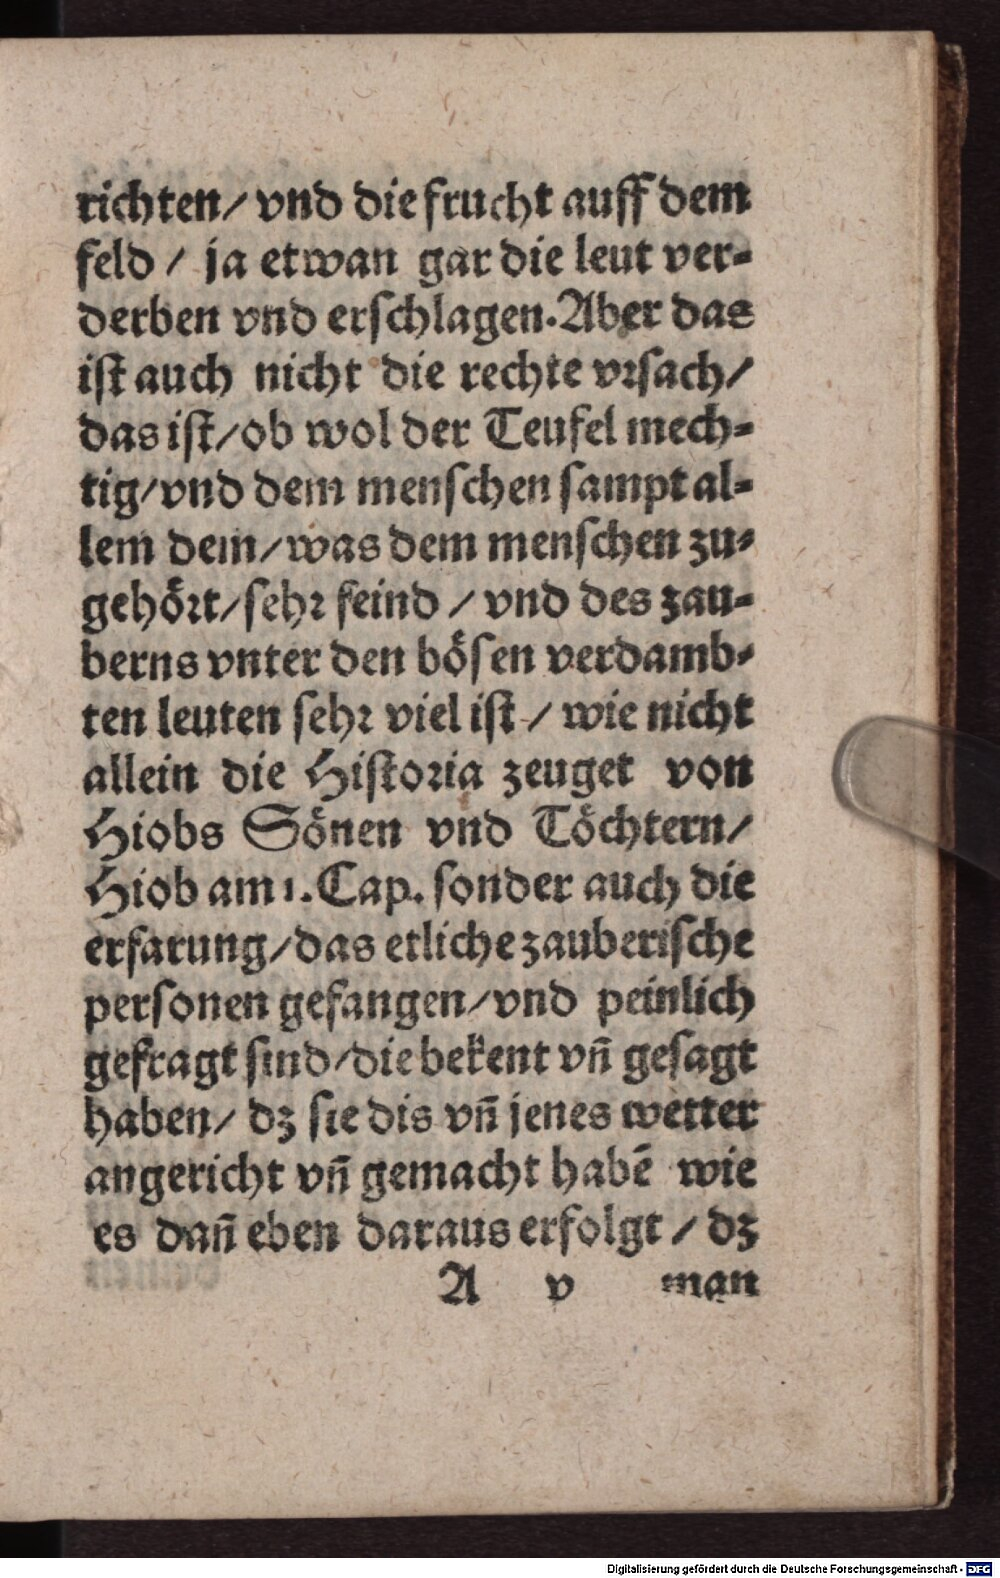 richten/ vnd die frucht auff dem
feld / ja etwan gar die leut ver-
derben vnd erschlagen. Aber das
ist auch nicht die rechte vrsach/
das ist/ ob wol der Teufel mech-
tig/ vnd dem menschen sampt al-
lem dem/ was dem menschen zu-
gehört/ sehr feind / vnd des zau-
berns vnter den bösen verdamb-
ten leuten sehr viel ist / wie nicht
allein die Historia zeuget von
Hiobs Sönen vnd Töchtern/
Hiob am 1. Cap. sonder auch die
erfarung/ das etliche zauberische
personen gefangen/ vnd peinlich
gefragt sind/ die bekent vñ gesagt
haben/ dz sie dis vñ jenes wetter
angericht vñ gemacht habẽ wie
es dañ eben daraus erfolgt / dz
A v man
Digitalisierung gefördert durch die Deutsche Forschungsgemeinschaft - DFG